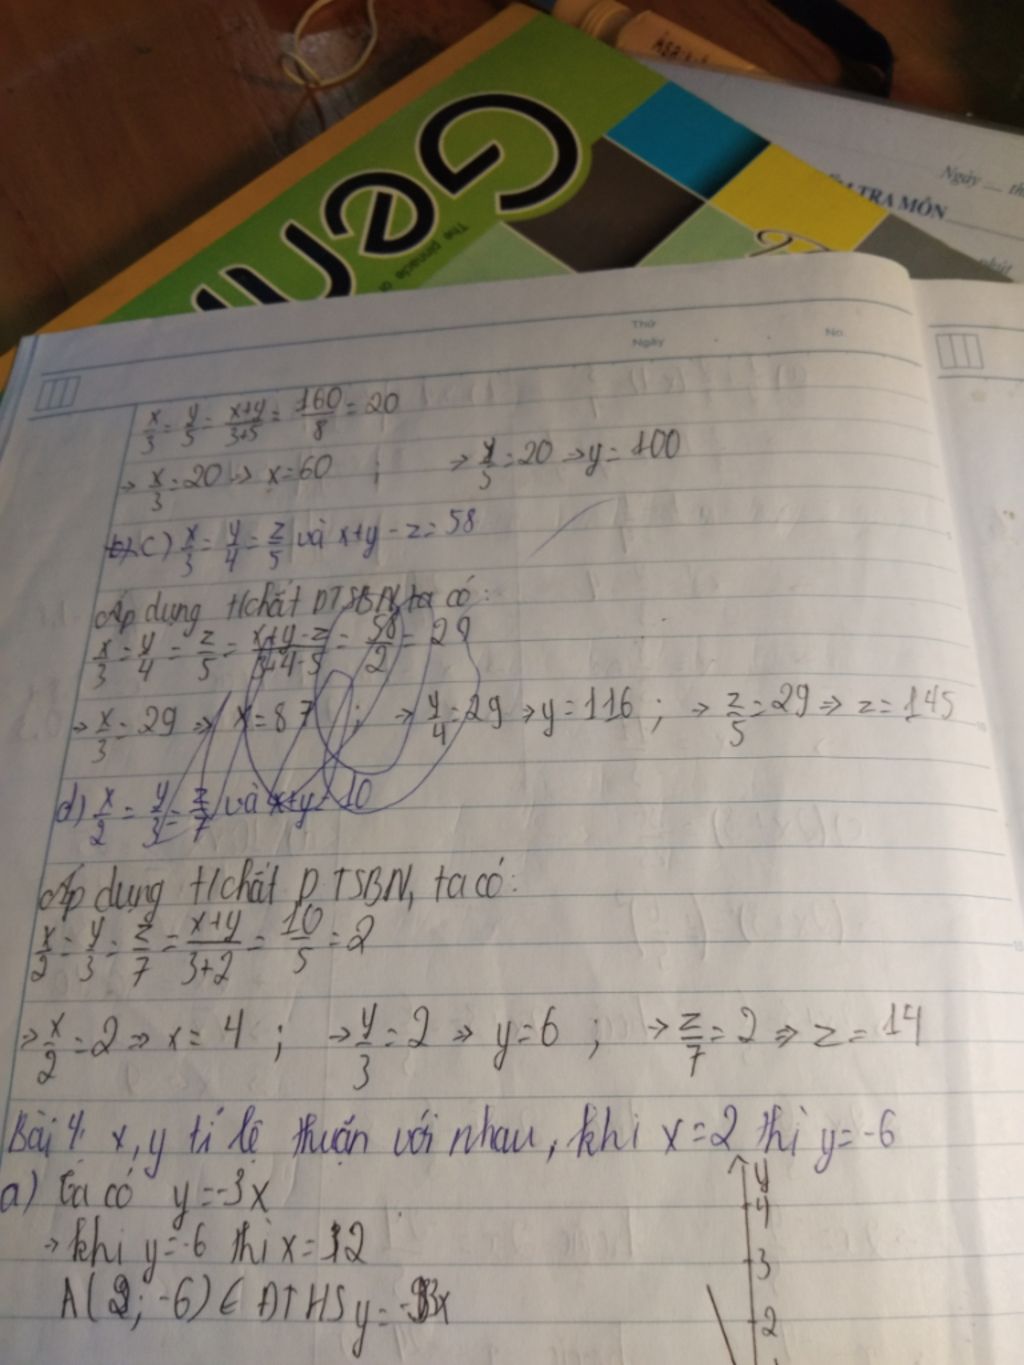 ASA
Gem
The pinnacle of
Ngày
TRA MÔN
Thứ
Ngày
No.
x/3 = y/5 = x+y/3+5 = 160/8 = 20
→ x/3 = 20 → x = 60 ; → y/5 = 20 → y = 100
c) x/3 = y/4 = z/5 và x+y-z = 58
Áp dụng t/chất DTSBN, ta có:
x/3 = y/4 = z/5 = x+y-z/3+4-5 = 58/2 = 29
→ x/3 = 29 → x = 87 ; → y/4 = 29 → y = 116 ; → z/5 = 29 → z = 145
d) x/2 = y/3 = z/7 và x+y = 10
Áp dụng t/chất DTSBN, ta có:
x/2 = y/3 = z/7 = x+y/3+2 = 10/5 = 2
→ x/2 = 2 → x = 4 ; → y/3 = 2 → y = 6 ; → z/7 = 2 → z = 14
Bài 4: x, y tỉ lệ thuận với nhau, khi x = 2 thì y = -6
a) Ta có y = -3x
→ khi y = -6 thì x = 2
A(2; -6) ∈ ĐTHS y = -3x
y
4
3
2